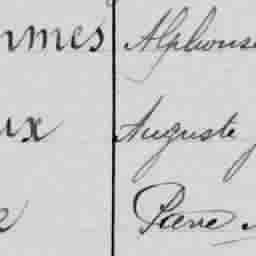 mmes Alphonse
ux Auguste
e Pierre